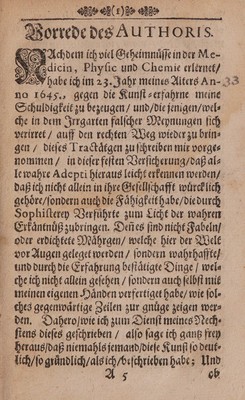 (1)
Vorrede des AUTHORIS.
NAchdem ich viel Geheimnüsse in der Me-
dicin, Physic und Chemie erlernet/
habe ich im 23. Jahr meines Alters An-
no 1645. gegen die Kunst-erfahrne meine
Schuldigkeit zu bezeugen / und/die jenigen/wel-
che in dem Irrgarten falscher Meynungen sich
verirret / auff den rechten Weg wieder zu brin-
gen / dieses Tractätgen zu schreiben mir vorge-
nommen / in dieser festen Versicherung/daß al-
le wahre Adepti hieraus leicht erkennen werden/
daß ich nicht allein in ihre Gesellschafft würcklich
gehöre/sondern auch die Fähigkeit habe/die durch
Sophisterey Verführte zum Licht der wahren
Erkäntnüß zubringen. Denes sind nicht Fabeln/
oder erdichtete Mährgen/ welche hier der Welt
vor Augen geleget werden / sondern wahrhaffte/
und durch die Erfahrung bestätigte Dinge / wel-
che ich nicht allein gesehen / sondern auch selbst mit
meinen eigenen Händen verfertiget habe / wie sol-
ches gegenwärtige Zeilen zur gnüge zeigen wer-
den. Dahero/wie ich zum Dienst meines Nech-
stens dieses geschrieben / also sage ich gantz frey
heraus/daß niemahls jemand/diese Kunst so deut-
lich/so gründlich/als ich/beschrieben habe; Und
A 5
ob
33